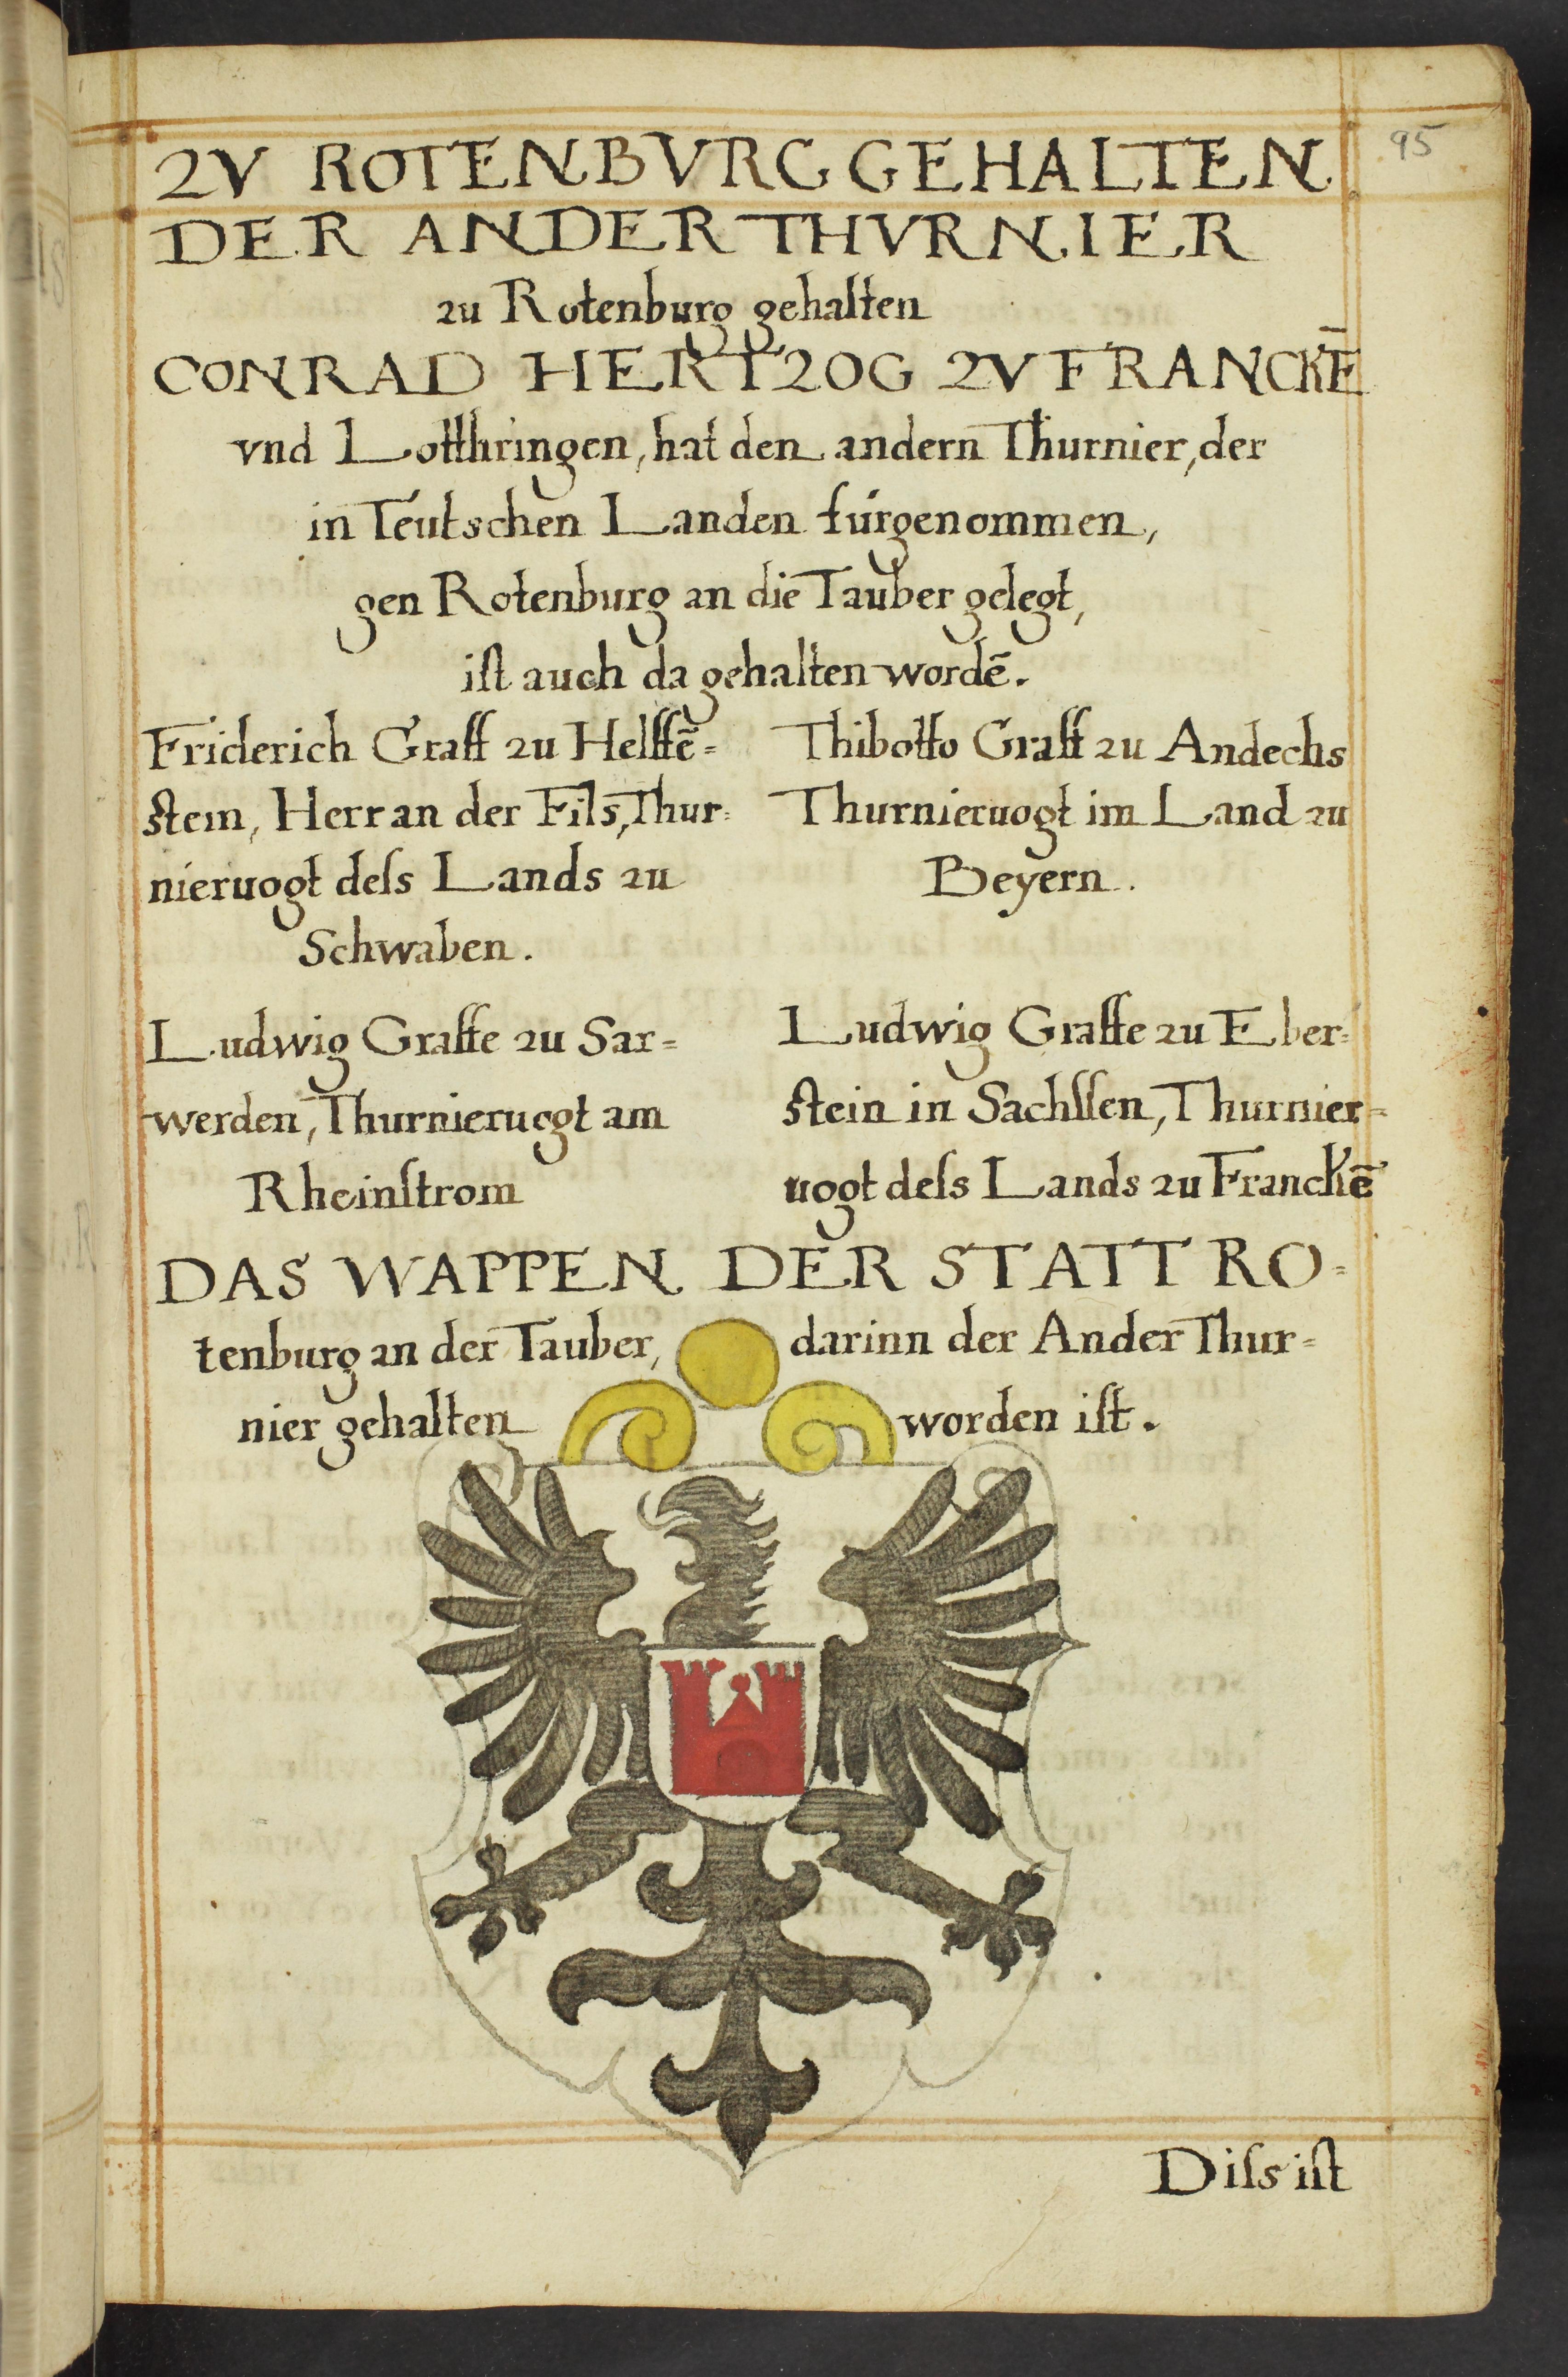 95
ZV ROTENBVRG GEHALTEN
DER ANDER THVRNIER
zu Rotenburg gehalten
CONRAD HERTZOG ZV FRANCKĒ
vnd Lotthringen, hat den andern Thurnier, der
in Teutschen Landen fúrgenommen,
gen Rotenburg an die Tauber gelegt,
iſt auch da gehalten wordē.
Friderich Graff zu Helffē=
stein, Herr an der Fils, Thur=
nieruogt deſs Lands zu
Schwaben.
Thibotto Graff zu Andechs
Thurnieruogt im Land zu
Beyern.
Ludwig Graffe zu Sar=
werden, Thurnieruogt am
Rheinſtrom
Ludwig Graffe zu Eber=
stein in Sachſſen, Thurnier=
uogt deſs Lands zu Franckē
DAS WAPPEN DER STATT RO=
tenburg an der Tauber, darinn der Ander Thur=
nier gehalten worden iſt.
Diſs iſt